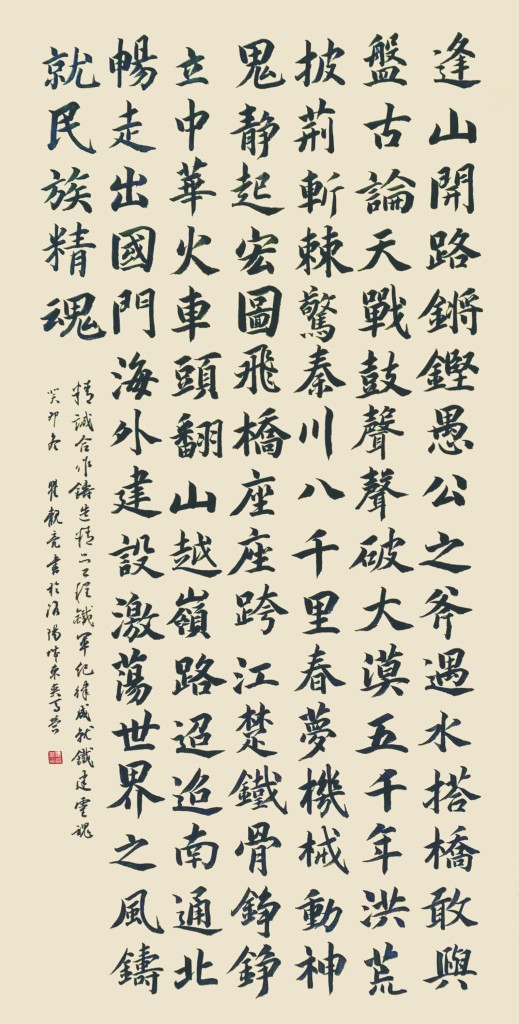 逢山開路鏘鏗愚公之斧遇水搭橋敢與
盤古論天戰鼓聲聲破大漠五千年洪荒
披荊斬棘驚秦川八千里春夢機械動神
鬼靜起宏圖飛橋座座跨江楚鐵骨錚錚
立中華火車頭翻山越嶺路迢迢南通北
暢走出國門海外建設激蕩世界之風鑄
就民族精魂
精誠合作鑄造精品工程鐵軍紀律成就鐵建靈魂
癸卯冬瞿觀亮書於洛陽